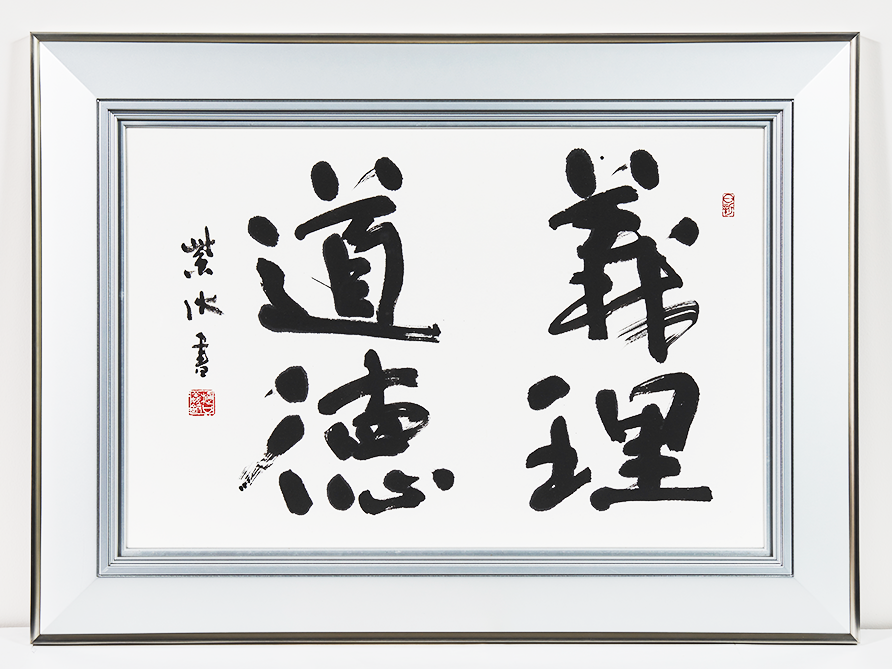 義理
道徳
紫水書